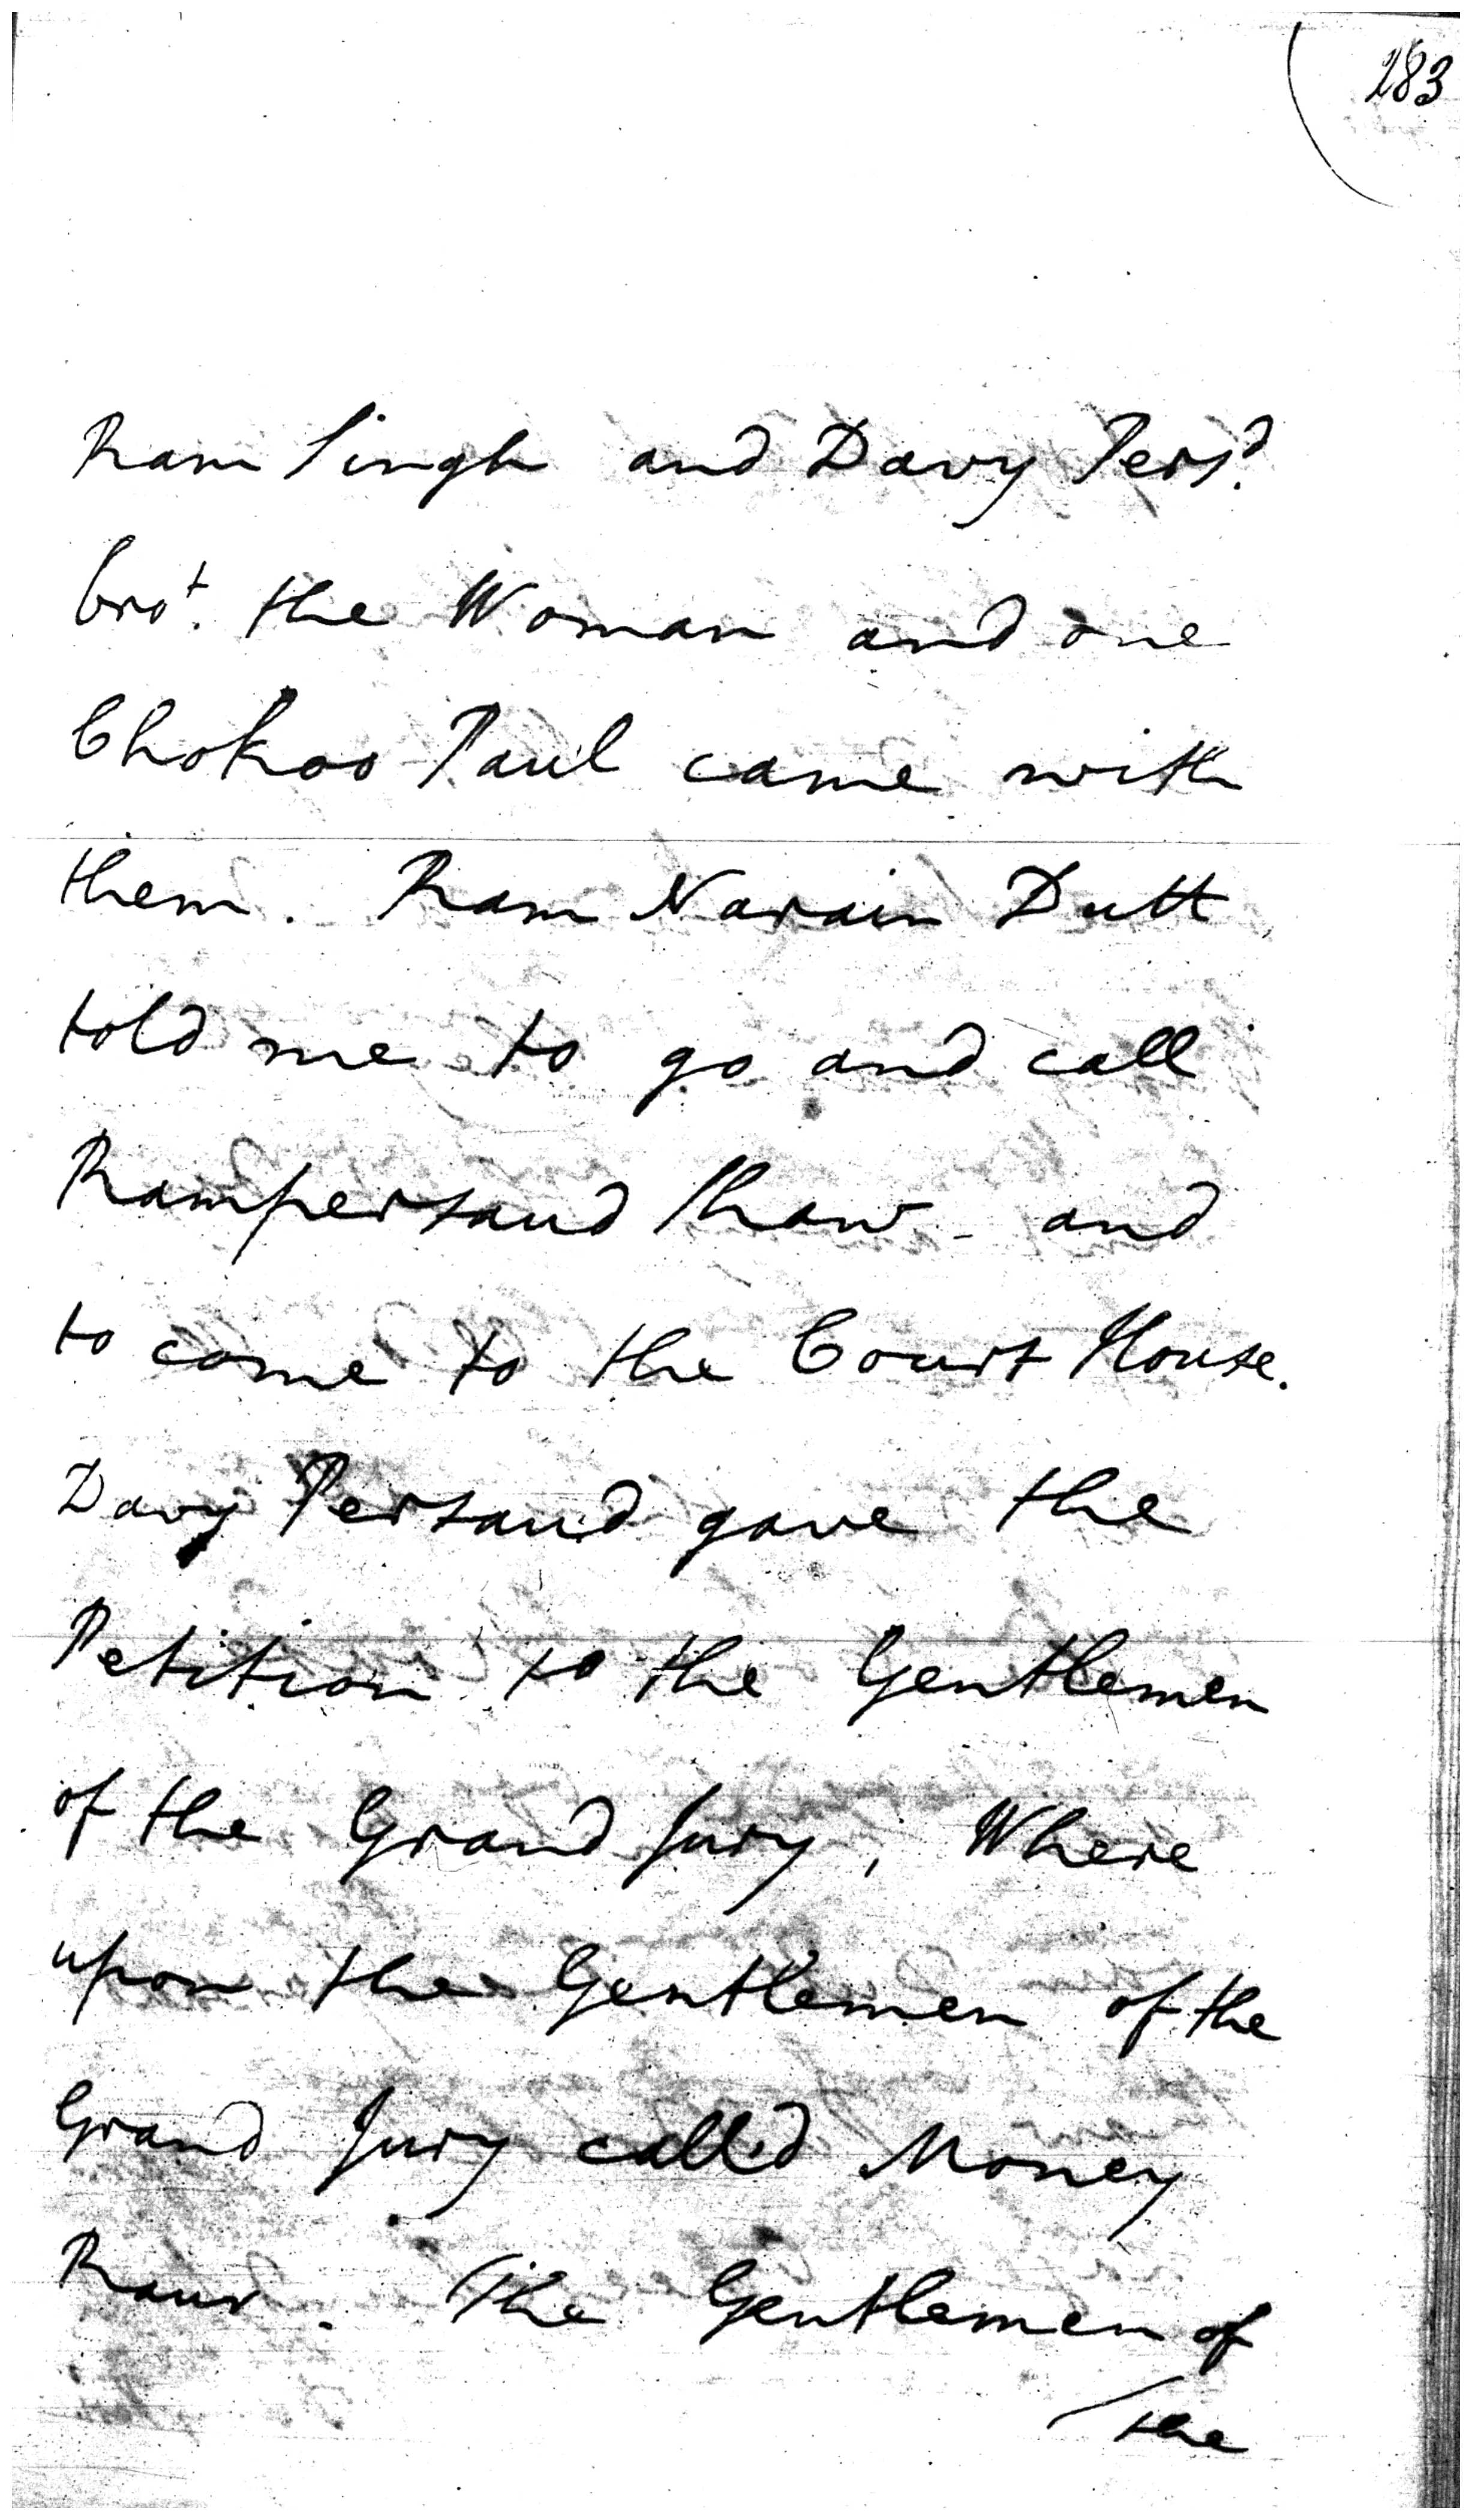 283
Ram Singh and Davy Persd.
brot. the Woman and one
Chokoo Paul came with
them. Ram Narain Dutt
told me to go and call
Rampersaud Shaw and
to come to the Court House.
Davy Persaud gave the
Petition to the Gentlemen
of the Grand Jury, Where
upon the Gentlemen of the
Grand Jury called Money
Raur. The Gentlemen of
the